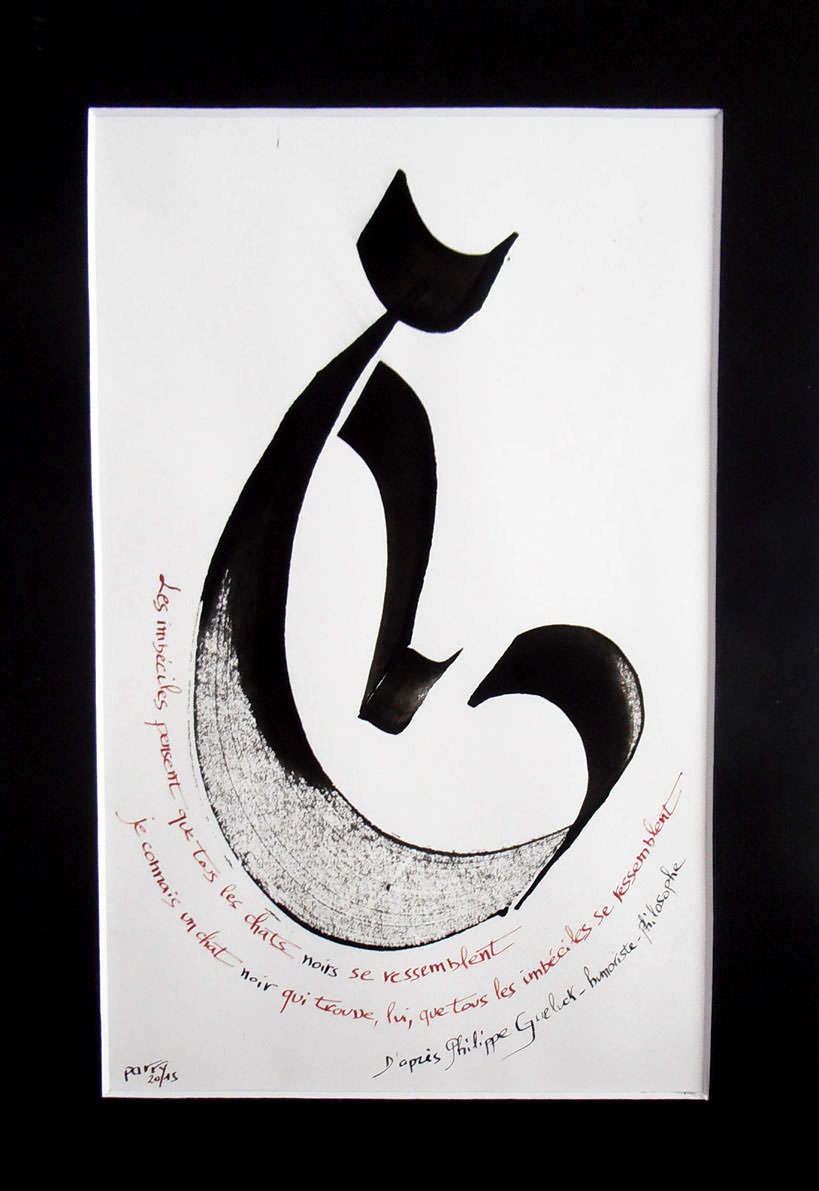 Les imbéciles pensent que tous les chats noirs se ressemblent
je connais un chat noir qui trouve, lui, que tous les imbéciles se ressemblent
D'après Philippe Gueluck - humoriste - philosophe
parry
2015